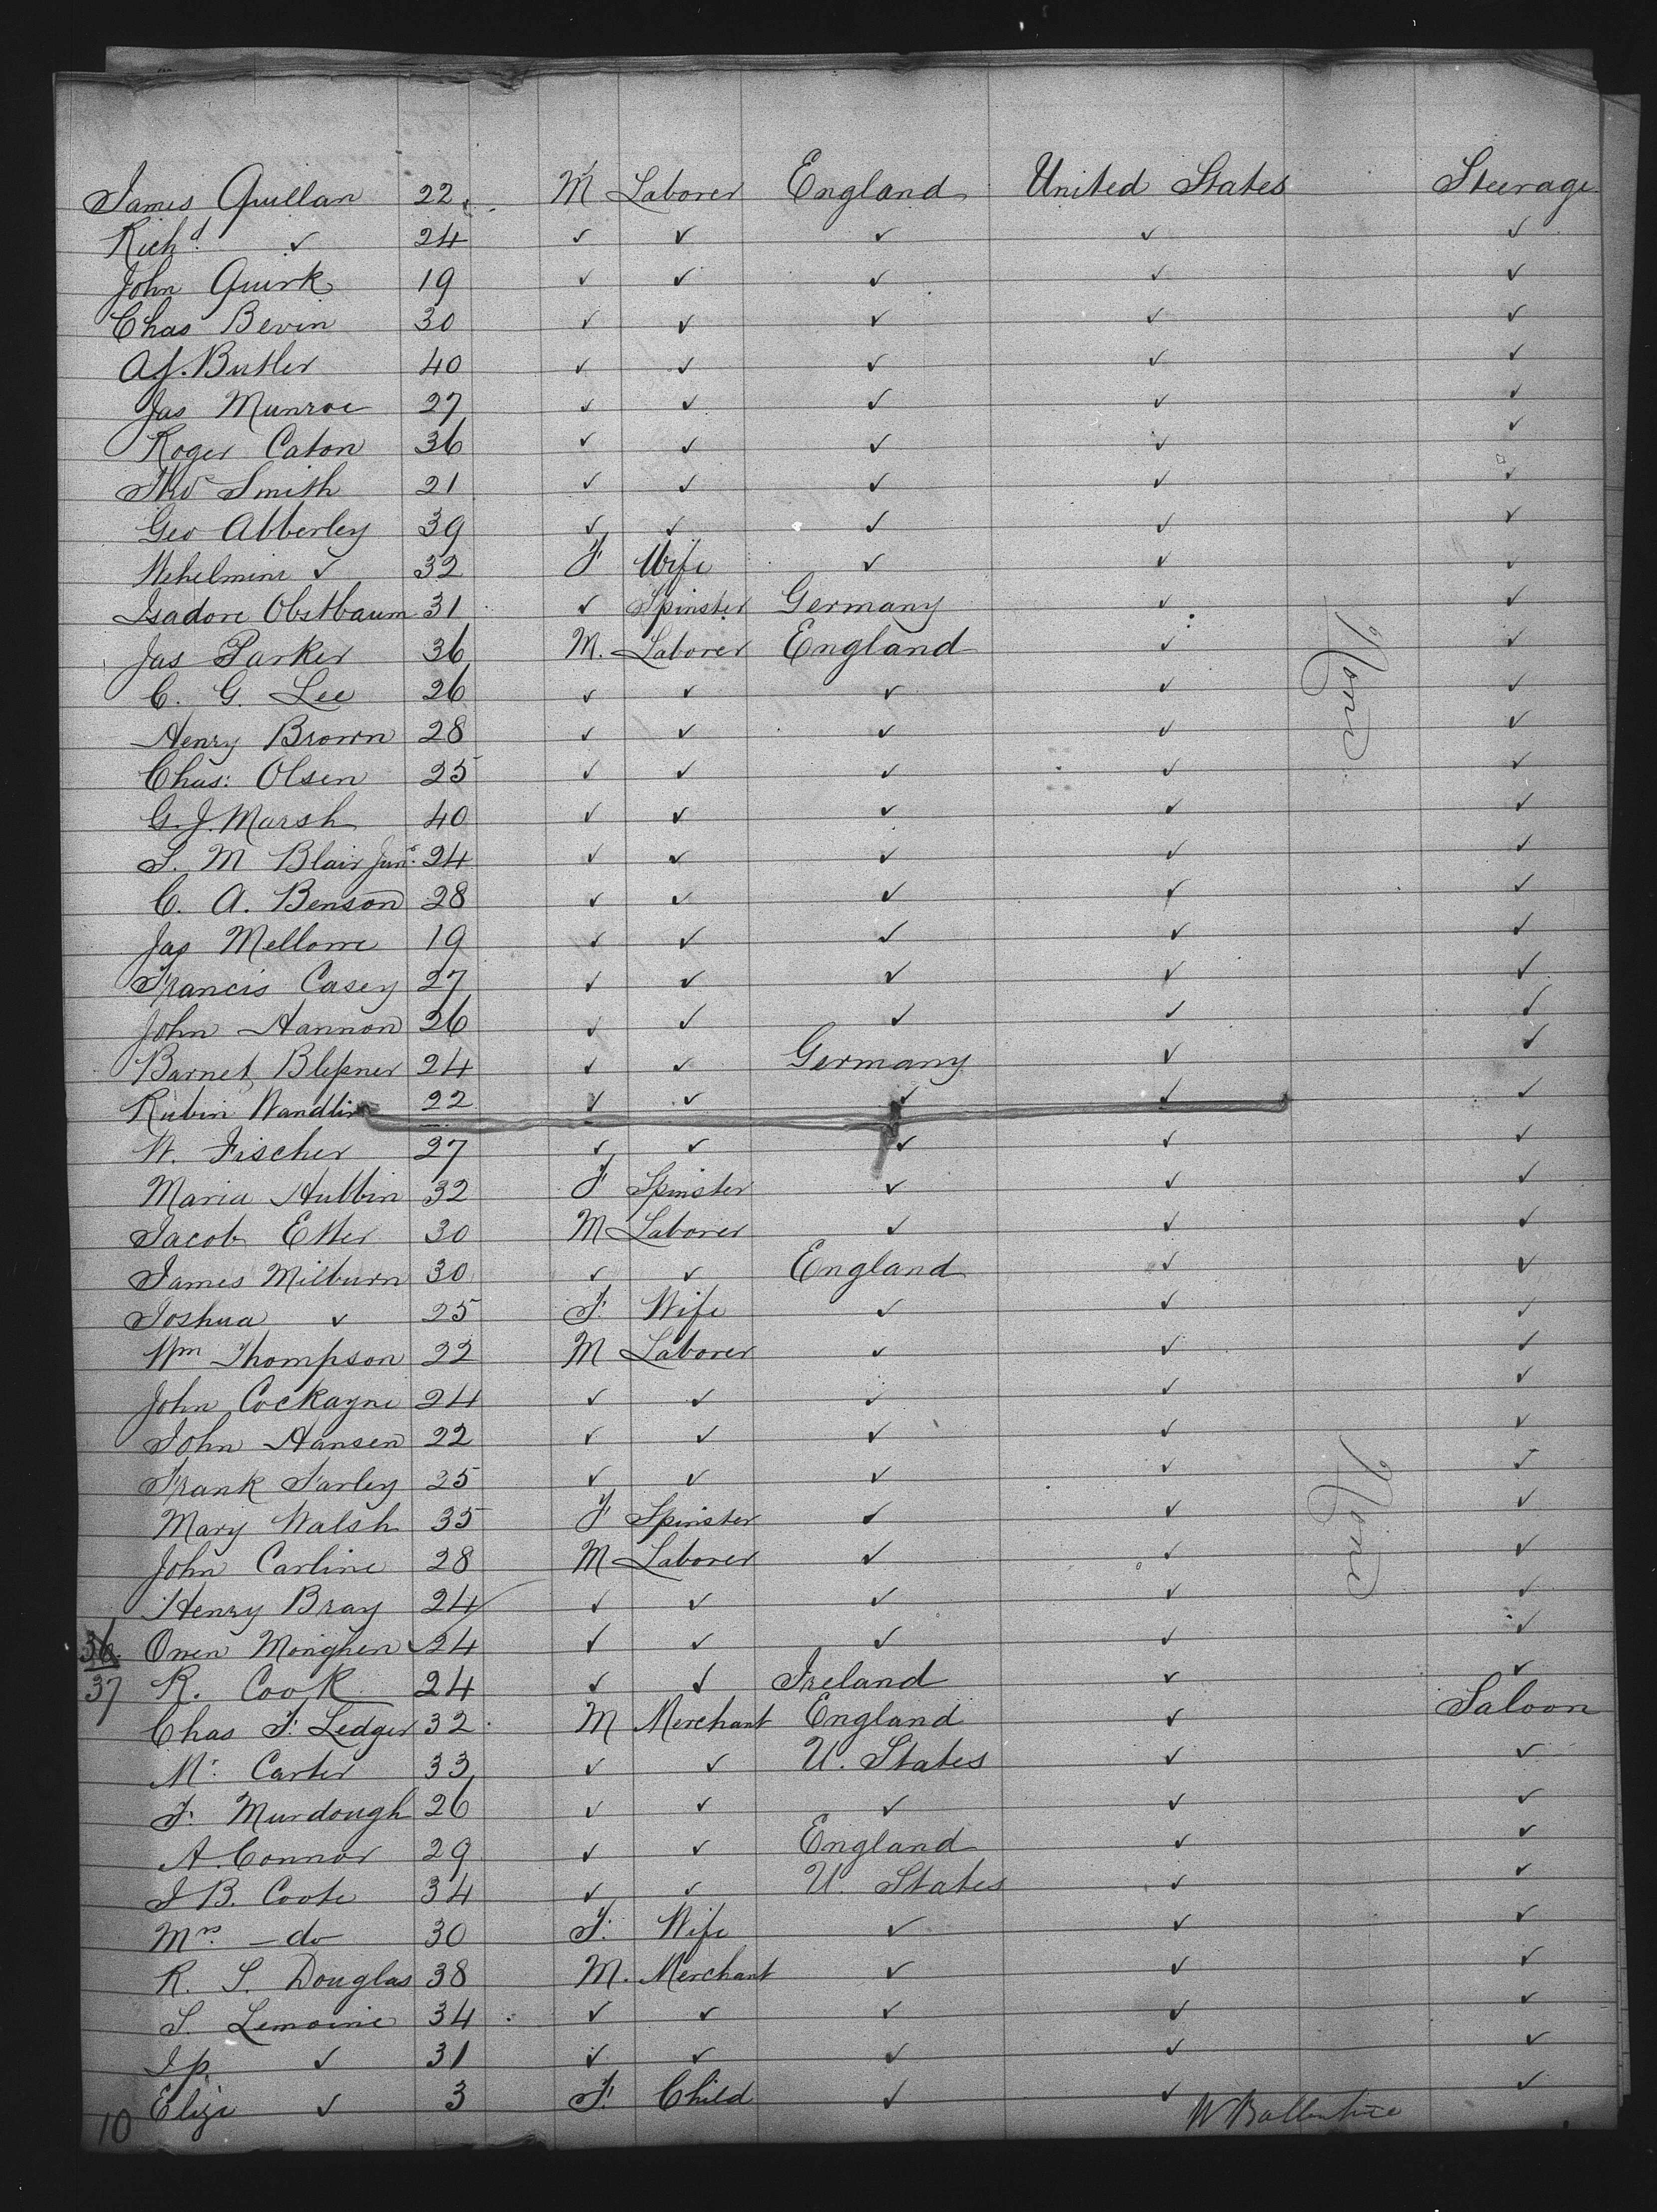 James Quillan 22. M Laborer England United States Steerage
Richd. ✓ 24 ✓ ✓ ✓ ✓ ✓
John Quirk 19 ✓ ✓ ✓ ✓ ✓
Chas Bevin 30 ✓ ✓ ✓ ✓ ✓
A.J. Butler 40 ✓ ✓ ✓ ✓ ✓
Jas Munroe 27 ✓ ✓ ✓ ✓ ✓
Roger Caton 36 ✓ ✓ ✓ ✓ ✓
Thos Smith 21 ✓ ✓ ✓ ✓ ✓
Geo Abberley 39 ✓ ✓ ✓ ✓ ✓
Wehelmine ✓ 32 F Wife ✓ ✓ ✓
Isadore Obstbaum 31 ✓ Spinster Germany ✓ ✓
Jas Parker 36 M. Laborer England ✓ None ✓
C. G. Lee 26 ✓ ✓ ✓ ✓ ✓
Henry Brown 28 ✓ ✓ ✓ ✓ ✓
Chas: Olsen 25 ✓ ✓ ✓ ✓ ✓
G. J. Marsh 40 ✓ ✓ ✓ ✓ ✓
S. M Blair Junr. 24 ✓ ✓ ✓ ✓ ✓
C. A. Benson 28 ✓ ✓ ✓ ✓ ✓
Jas Mellowe 19 ✓ ✓ ✓ ✓ ✓
Francis Casey 27 ✓ ✓ ✓ ✓ ✓
John Hannon 26 ✓ ✓ ✓ ✓ ✓
Barnet Blessner 24 ✓ ✓ Germany ✓ ✓
Rubin Wandlin 22 ✓ ✓ ✓ ✓ ✓
W. Fischer 27 ✓ ✓ ✓ ✓ ✓
Maria Hubbin 32 F Spinster ✓ ✓ ✓
Jacob Etter 30 M Laborer ✓ ✓ ✓
James Milburn 30 ✓ ✓ England ✓ ✓
Joshua ✓ 25 F. Wife ✓ ✓ ✓
Wm Thompson 22 M Laborer ✓ ✓ ✓
John Cockayne 24 ✓ ✓ ✓ ✓ ✓
John Hansen 22 ✓ ✓ ✓ ✓ ✓
Frank Farley 25 ✓ ✓ ✓ ✓ ✓
Mary Walsh 35 F Spinster ✓ ✓ None ✓
John Carline 28 M Laborer ✓ ✓ ✓
Henry Bray 24 ✓ ✓ ✓ ✓ ✓
36. Owen Monghen 24 ✓ ✓ ✓ ✓ ✓
37 R. Cook 24 ✓ ✓ Ireland ✓ ✓
Chas F. Ledger 32 M Merchant England ✓ Saloon
Mr. Carter 33 ✓ ✓ U. States ✓ ✓
F. Murdough 26 ✓ ✓ ✓ ✓ ✓
A. Connor 29 ✓ ✓ England ✓ ✓
J B. Coote 34 ✓ ✓ U. States ✓ ✓
Mrs. - do 30 F. Wife ✓ ✓ ✓
R. S. Douglas 38 M. Merchant ✓ ✓ ✓
S. Lemoine 34 ✓ ✓ ✓ ✓ ✓
✓ 31 ✓ ✓ ✓ ✓ ✓
Eliza ✓ 3 F. Child ✓ ✓ ✓
10 W Ballentine